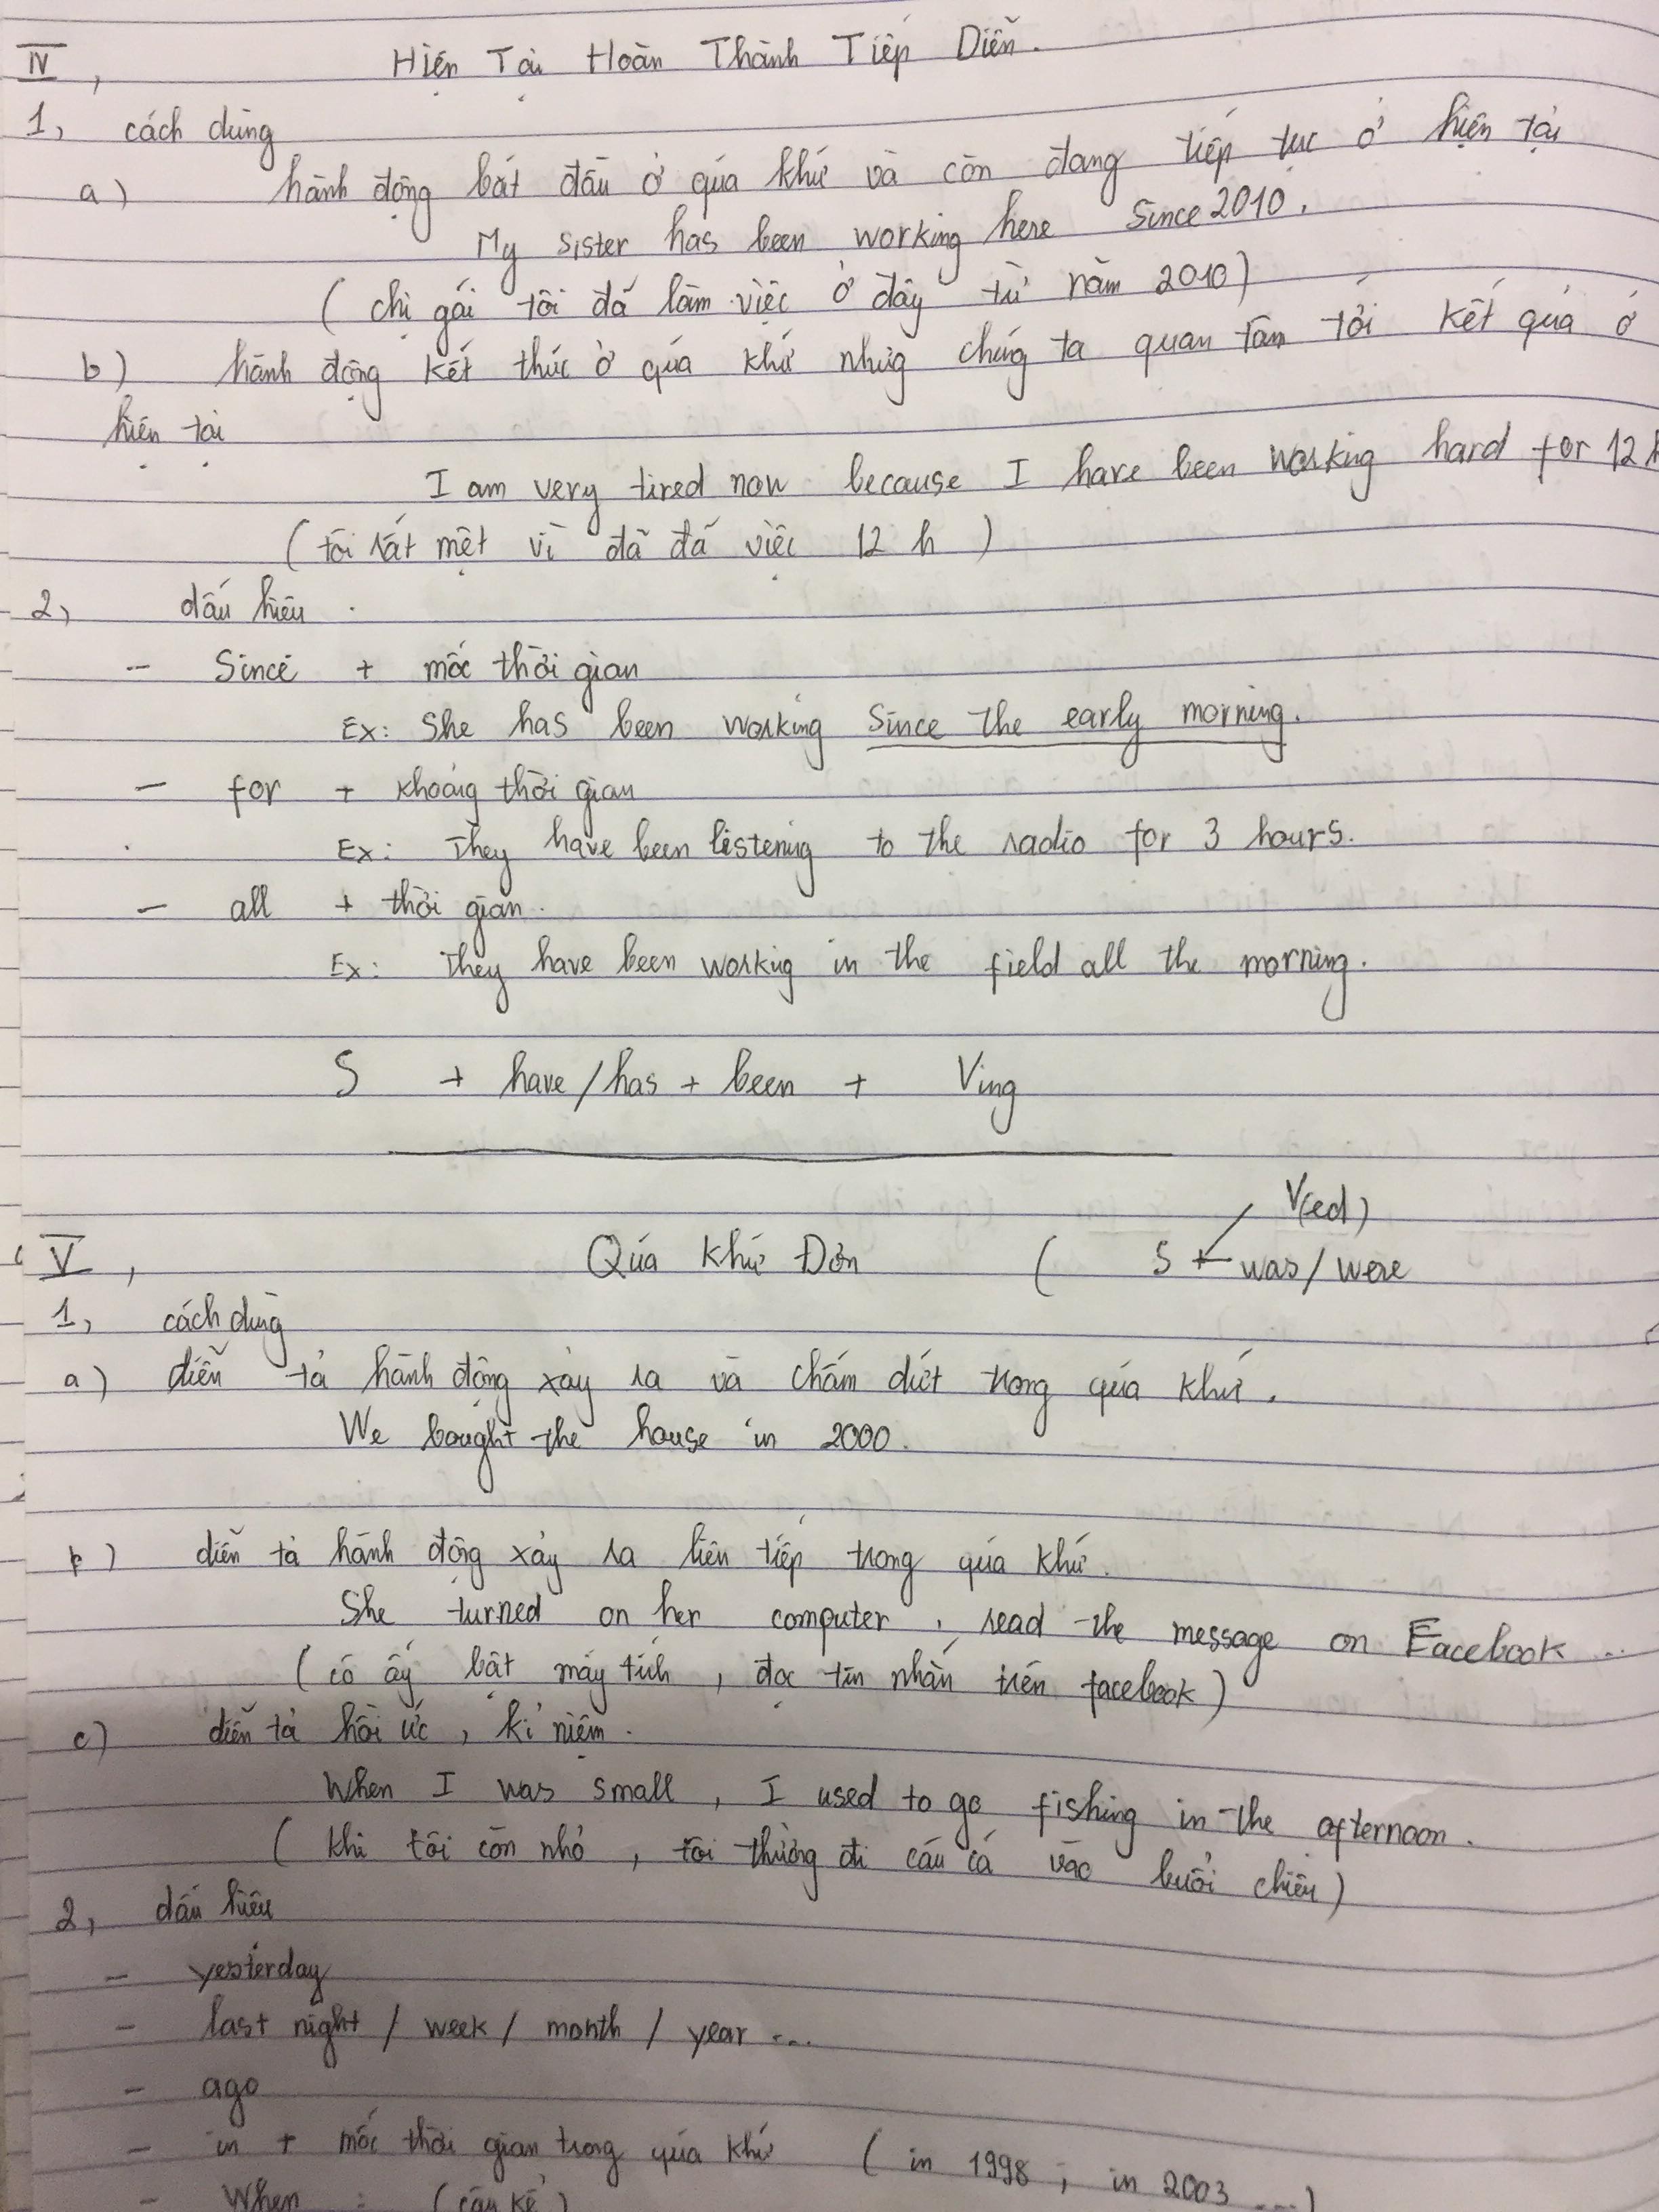 IV, Hiện Tại Hoàn Thành Tiếp Diễn.
1, cách dùng
a) hành động bắt đầu ở quá khứ và còn đang tiếp tục ở hiện tại
My sister has been working here since 2010.
( chị gái tôi đã làm việc ở đây từ năm 2010)
b) hành động kết thúc ở quá khứ nhưng chúng ta quan tâm tới kết quả ở
hiện tại
I am very tired now because I have been working hard for 12 h
( tôi rất mệt vì đã đã việc 12 h )
2, dấu hiệu
- Since + mốc thời gian
Ex: She has been working since the early morning.
- for + khoảng thời gian
Ex: They have been listening to the radio for 3 hours.
- all + thời gian.
Ex: They have been working in the field all the morning.
S + have/has + been + Ving
V(ed)
V, Quá Khứ Đơn ( S + was/were
1, cách dùng
a) diễn tả hành động xảy ra và chấm dứt trong quá khứ.
We bought the house in 2000.
b) diễn tả hành động xảy ra liên tiếp trong quá khứ.
She turned on her computer, read the message on Facebook ...
( cô ấy bật máy tính, đọc tin nhắn trên facebook)
c) diễn tả hồi ức, kỉ niệm.
When I was small, I used to go fishing in the afternoon.
( khi tôi còn nhỏ, tôi thường đi câu cá vào buổi chiều)
2, dấu hiệu
- yesterday
- last night / week / month / year ...
- ago
- in + mốc thời gian trong quá khứ ( in 1998 ; in 2003 ...)
- When : (câu kể)